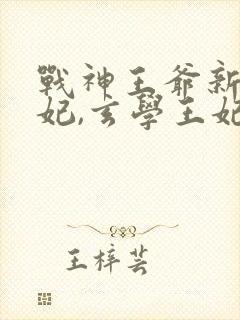 戰神王爺新
妃,玄學王妃
王梓芸